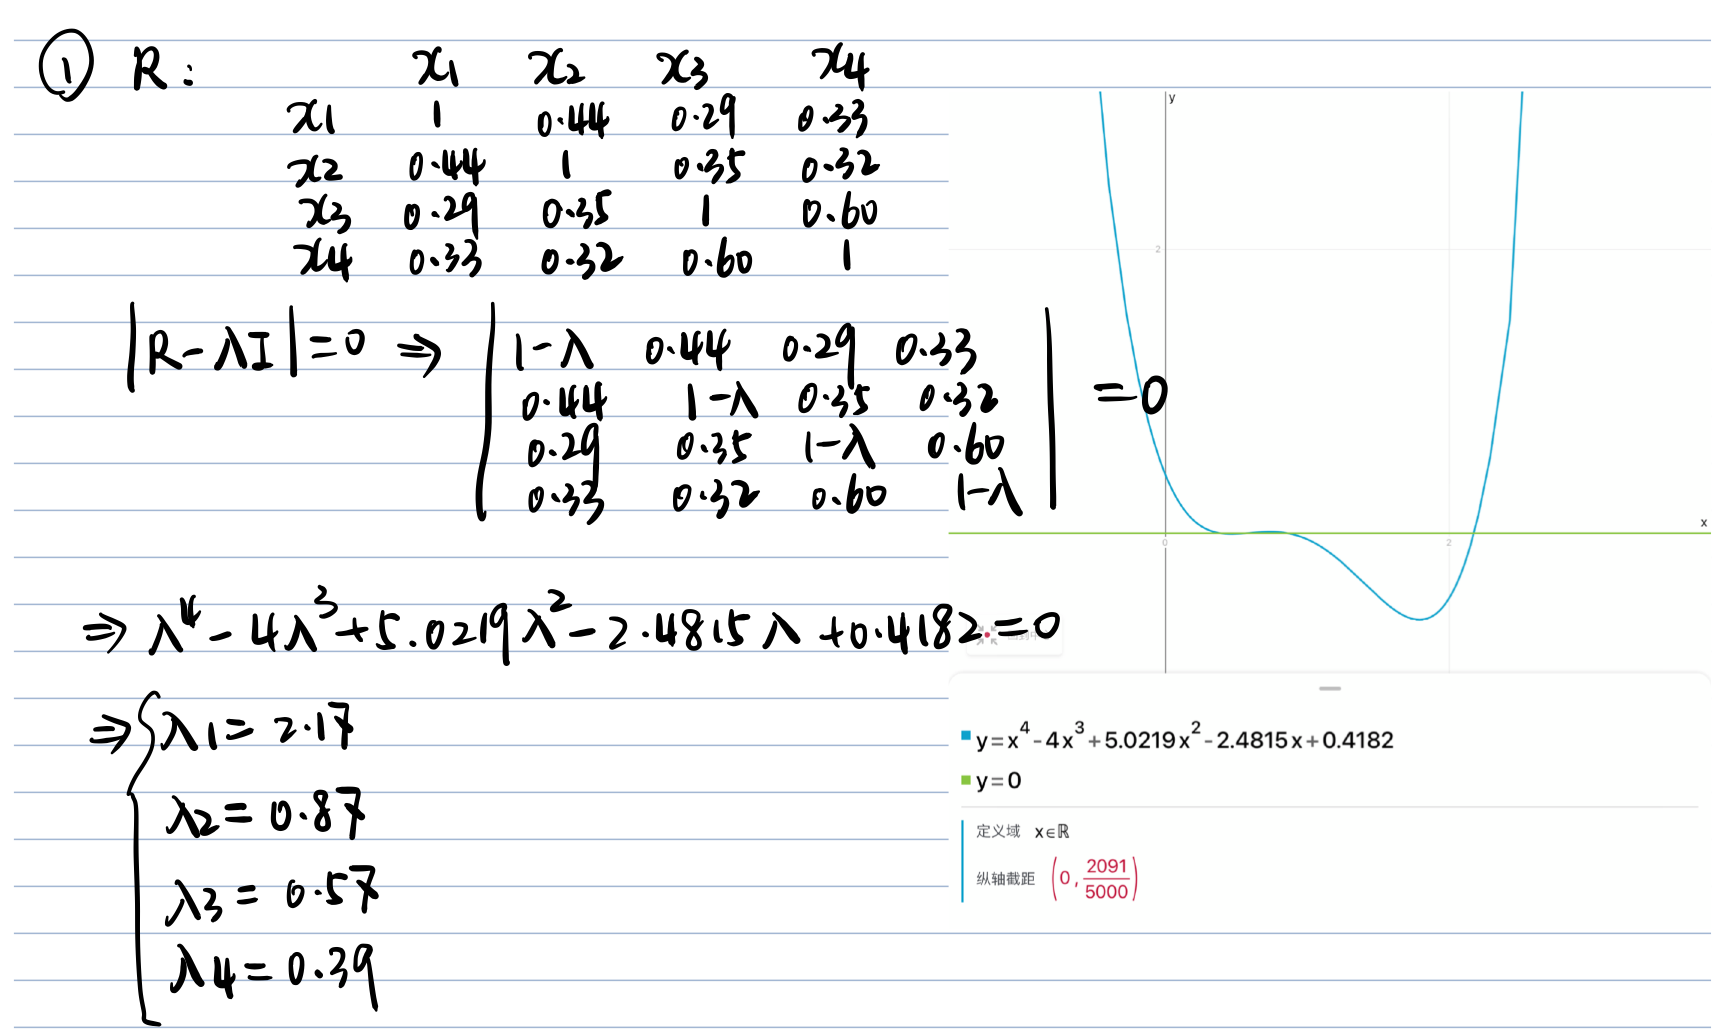 ① R: x1 x2 x3 x4
x1 1 0.44 0.29 0.33
x2 0.44 1 0.35 0.32
x3 0.29 0.35 1 0.60
x4 0.33 0.32 0.60 1
|R-λI|=0 ⇒ | 1-λ 0.44 0.29 0.33 |
0.44 1-λ 0.35 0.32 =0
0.29 0.35 1-λ 0.60
0.33 0.32 0.60 1-λ
⇒ λ⁴-4λ³+5.0219λ²-2.4815λ+0.4182=0
⇒ { λ1=2.17
λ2=0.87
λ3=0.57
λ4=0.39
y
2
x
0 2
y=x⁴-4x³+5.0219x²-2.4815x+0.4182
y=0
定义域 x∈ℝ
纵轴截距 (0, 2091/5000)